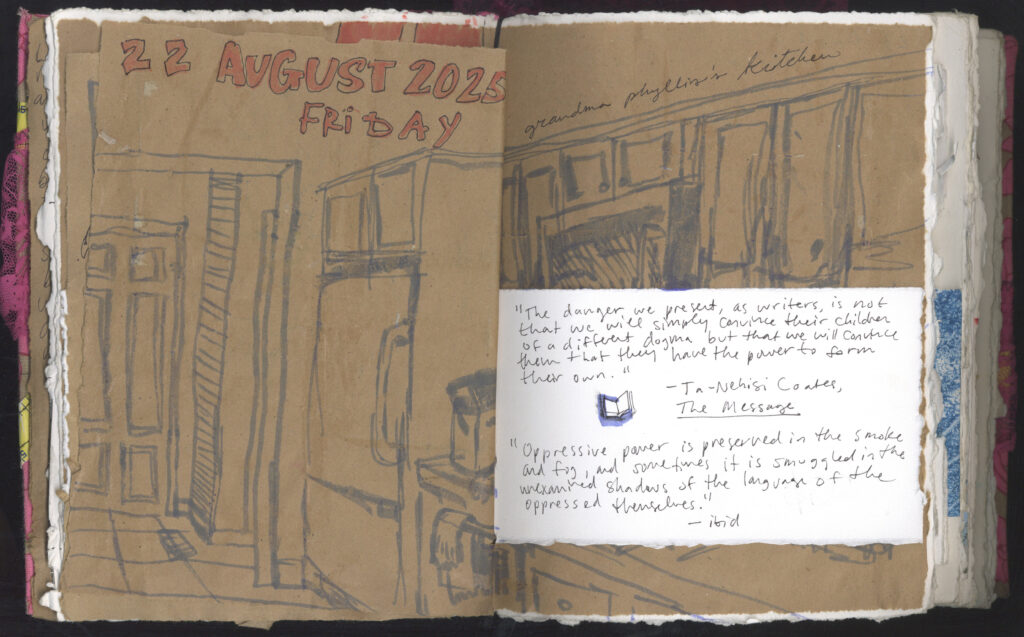 22 AUGUST 2025
FRIDAY
grandma phyllis's kitchen
"The danger we present, as writers, is not
that we will simply convince their children
of a different dogma but that we will convince
them that they have the power to form
their own."
— Ta-Nehisi Coates,
The Message
"Oppressive power is preserved in the smoke
and fog, and sometimes it is smuggled in the
unexamined shadows of the language of the
oppressed themselves."
— ibid